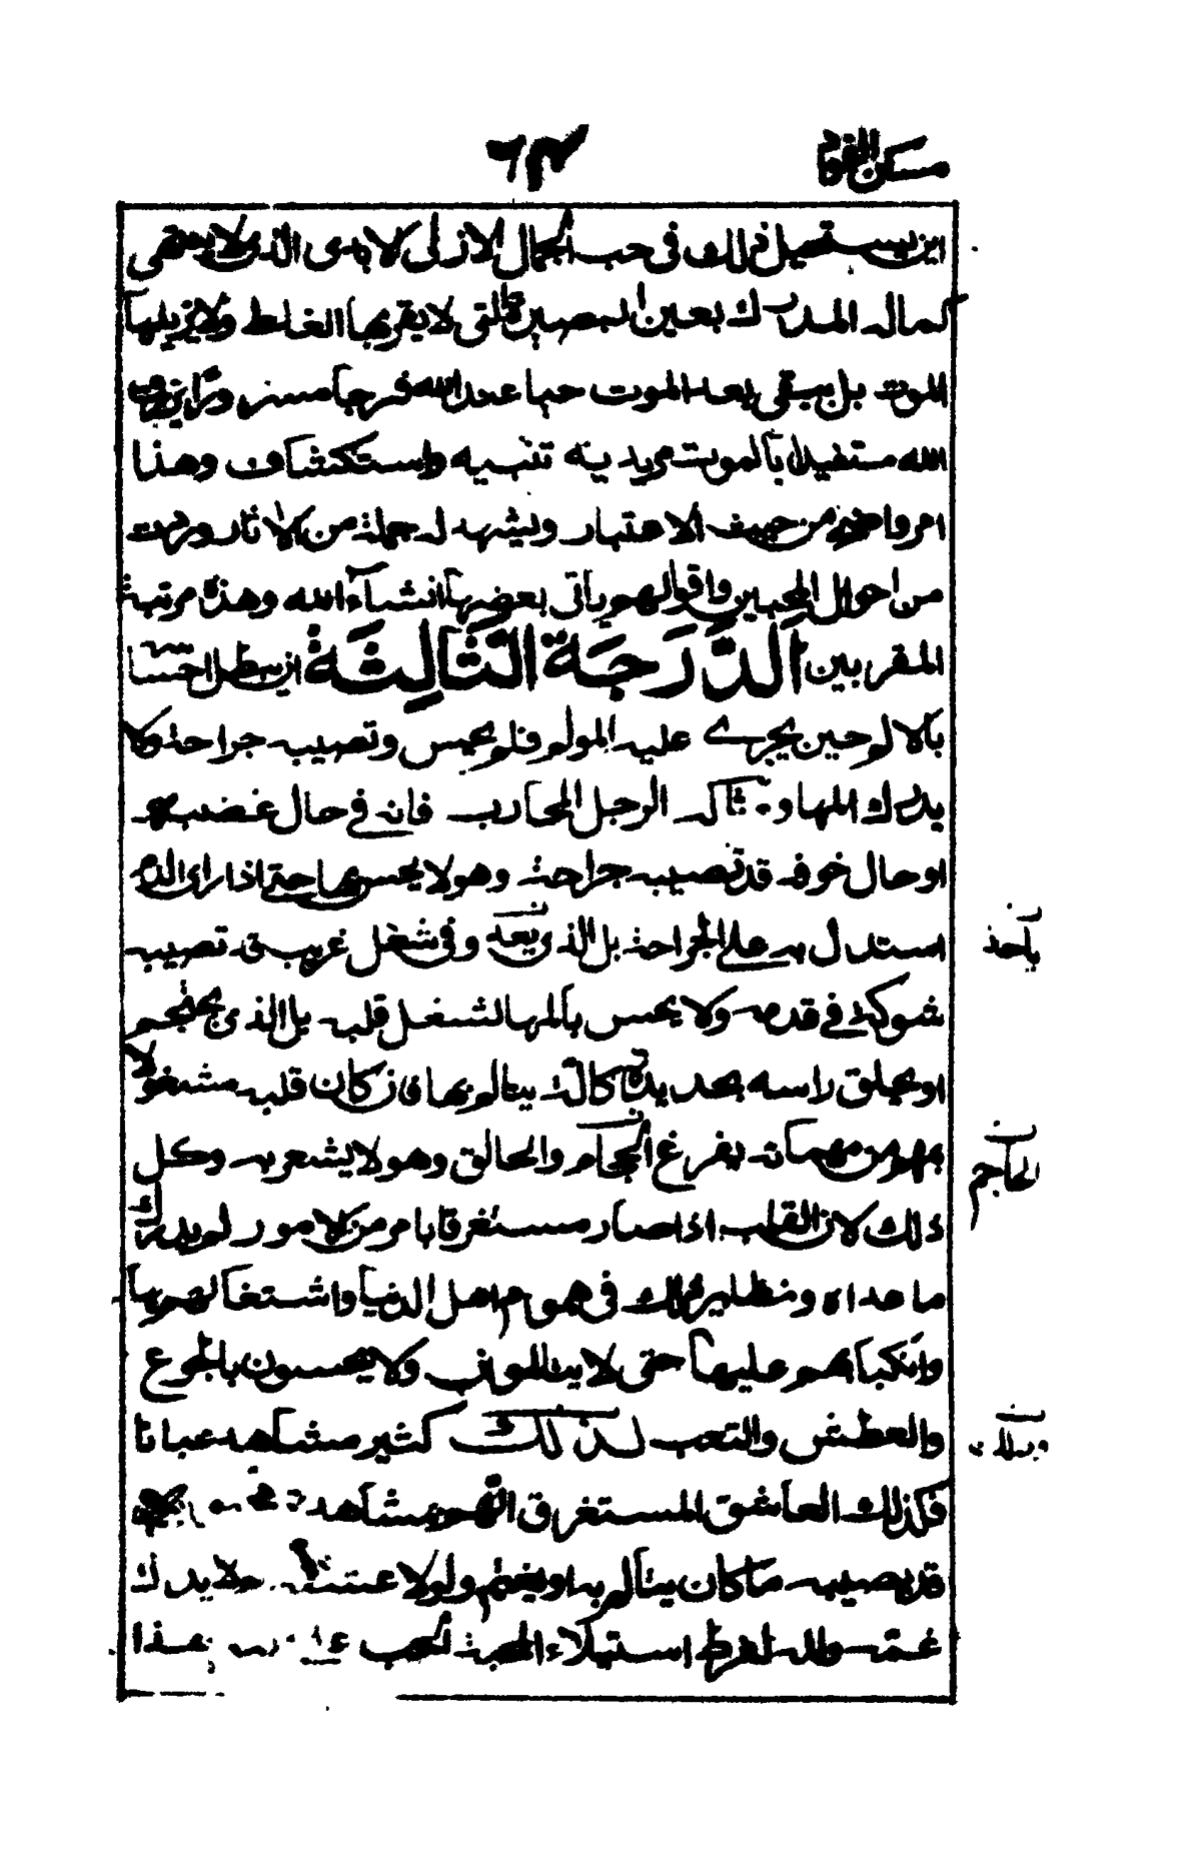 مسكن الفؤاد
٦٣
اين يستحيل ذلك في حب الجمال الازلي الابدى الذى لا ينتهى
كماله المدرك بعين البصيرة التى لا يقربها الغلط ولا يزيلها
الموت بل يبقى بعد الموت حيا عند الله فرحا مسر ورا برزق
الله مستفيدا بالموت مزيد تنبيه واستكشاف وهذا
امر واضح من حيث الاعتبار ويشهد له جملة من الاثار وردت
من احوال المحبين واقوالهم ياتى بعضها انشاء الله وهذه مرتبة
المقربين الدَّرَجَة الثَّالِثَة ان يبطل احساسه
بالالم حين يجرى عليه المولم فلم يحس وتصيبه جراحة ولا
يدرك المها و ثاله الرجل المحارب فانه في حال غضبه
او حال خوفه قد تصيبه جراحة وهو لا يحس بها حتى اذا راى الدم
استدل به على الجراحة بل الذى يعد وفى شغل غريب قد تصيبه
شوكة في قدمه ولا يحس بالمها لشغل قلبه بل الذى يحجم
او يحلق راسه بحديدة كالة يتالم بها فان كان قلبه مشغولا
بمهم من مهماته يفرغ الحجام والحالق وهو لا يشعر به وكل
ذلك لان القلب اذا صار مستغرقا بامر من الامور لم يدرك
ما عداه ونظير ذلك فى هموم اهل الدنيا واشتغالهم بها
وانكبابهم عليها حتى لا يتالمون ولا يحسون بالجوع
والعطش والتعب لذلك كثير مشاهد عيانا
فكذلك العاشق المستغرق الهم بمشاهدة
قد يصيبه ما كان يتالم به او يغتم ولولا عشقه لا يدرك
غمه والمه لفرط استيلاء المحبة الحب هذا
ياخذ
الحاجم